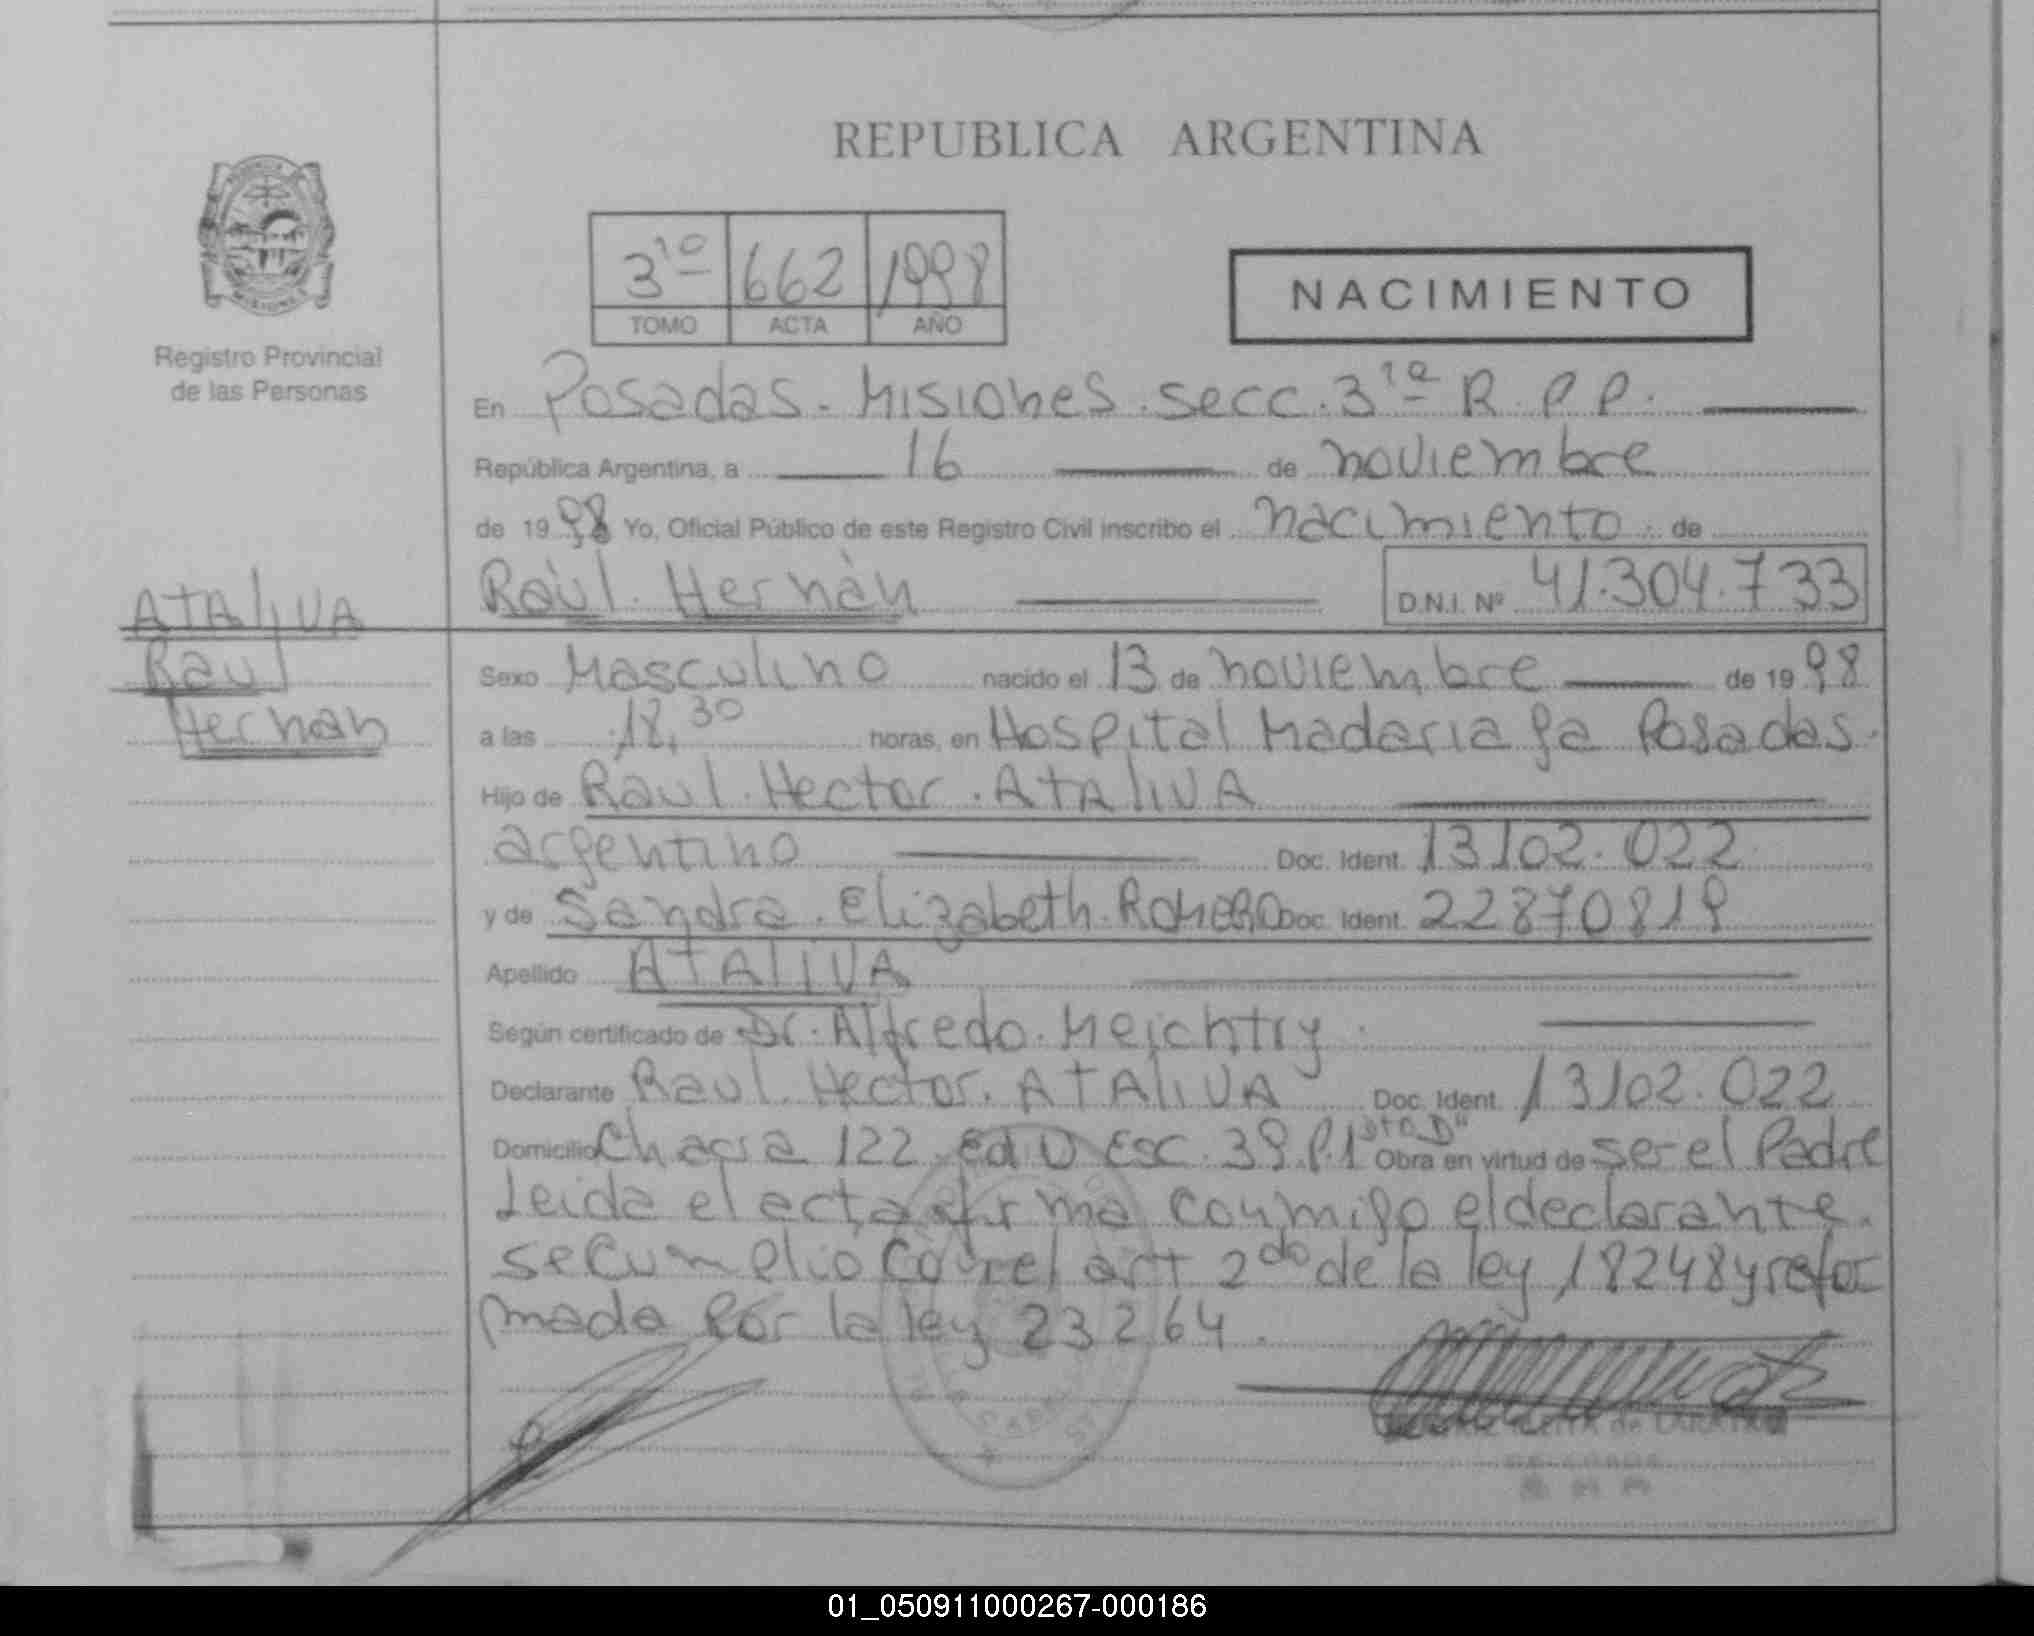 REPUBLICA ARGENTINA
3ro 662 1998
TOMO ACTA AÑO
NACIMIENTO
Registro Provincial
de las Personas
En Posadas. Misiones. secc. 3ra R. P. P.
República Argentina, a 16 de noviembre
de 1998 Yo, Oficial Público de este Registro Civil inscribo el nacimiento de
Raúl. Hernàn D.N.I. Nº 41.304.733
ATAlIVA
Raul
Hernan
Sexo Masculino nacido el 13 de noviembre de 1998
a las 18,30 horas, en Hospital Madariaga Posadas.
Hijo de Raul. Hector. ATAlIVA
argentino Doc. Ident. 13102.022
y de Sandra. Elizabeth. ROMERO Doc. Ident. 22870819
Apellido ATAlIVA
Según certificado de Dr. Alfredo. Meichtry.
Declarante Raul. Hector. ATAlIVA Doc. Ident. 13102.022
Domicilio Chacra 122. ed U Esc. 39. P.1 dto D" Obra en virtud de ser el Padre
Leida el acta firma conmigo el declarante.
se cumplio con el art 2do de la ley 18248 y refor
mada por la ley 23264.
01_050911000267-000186